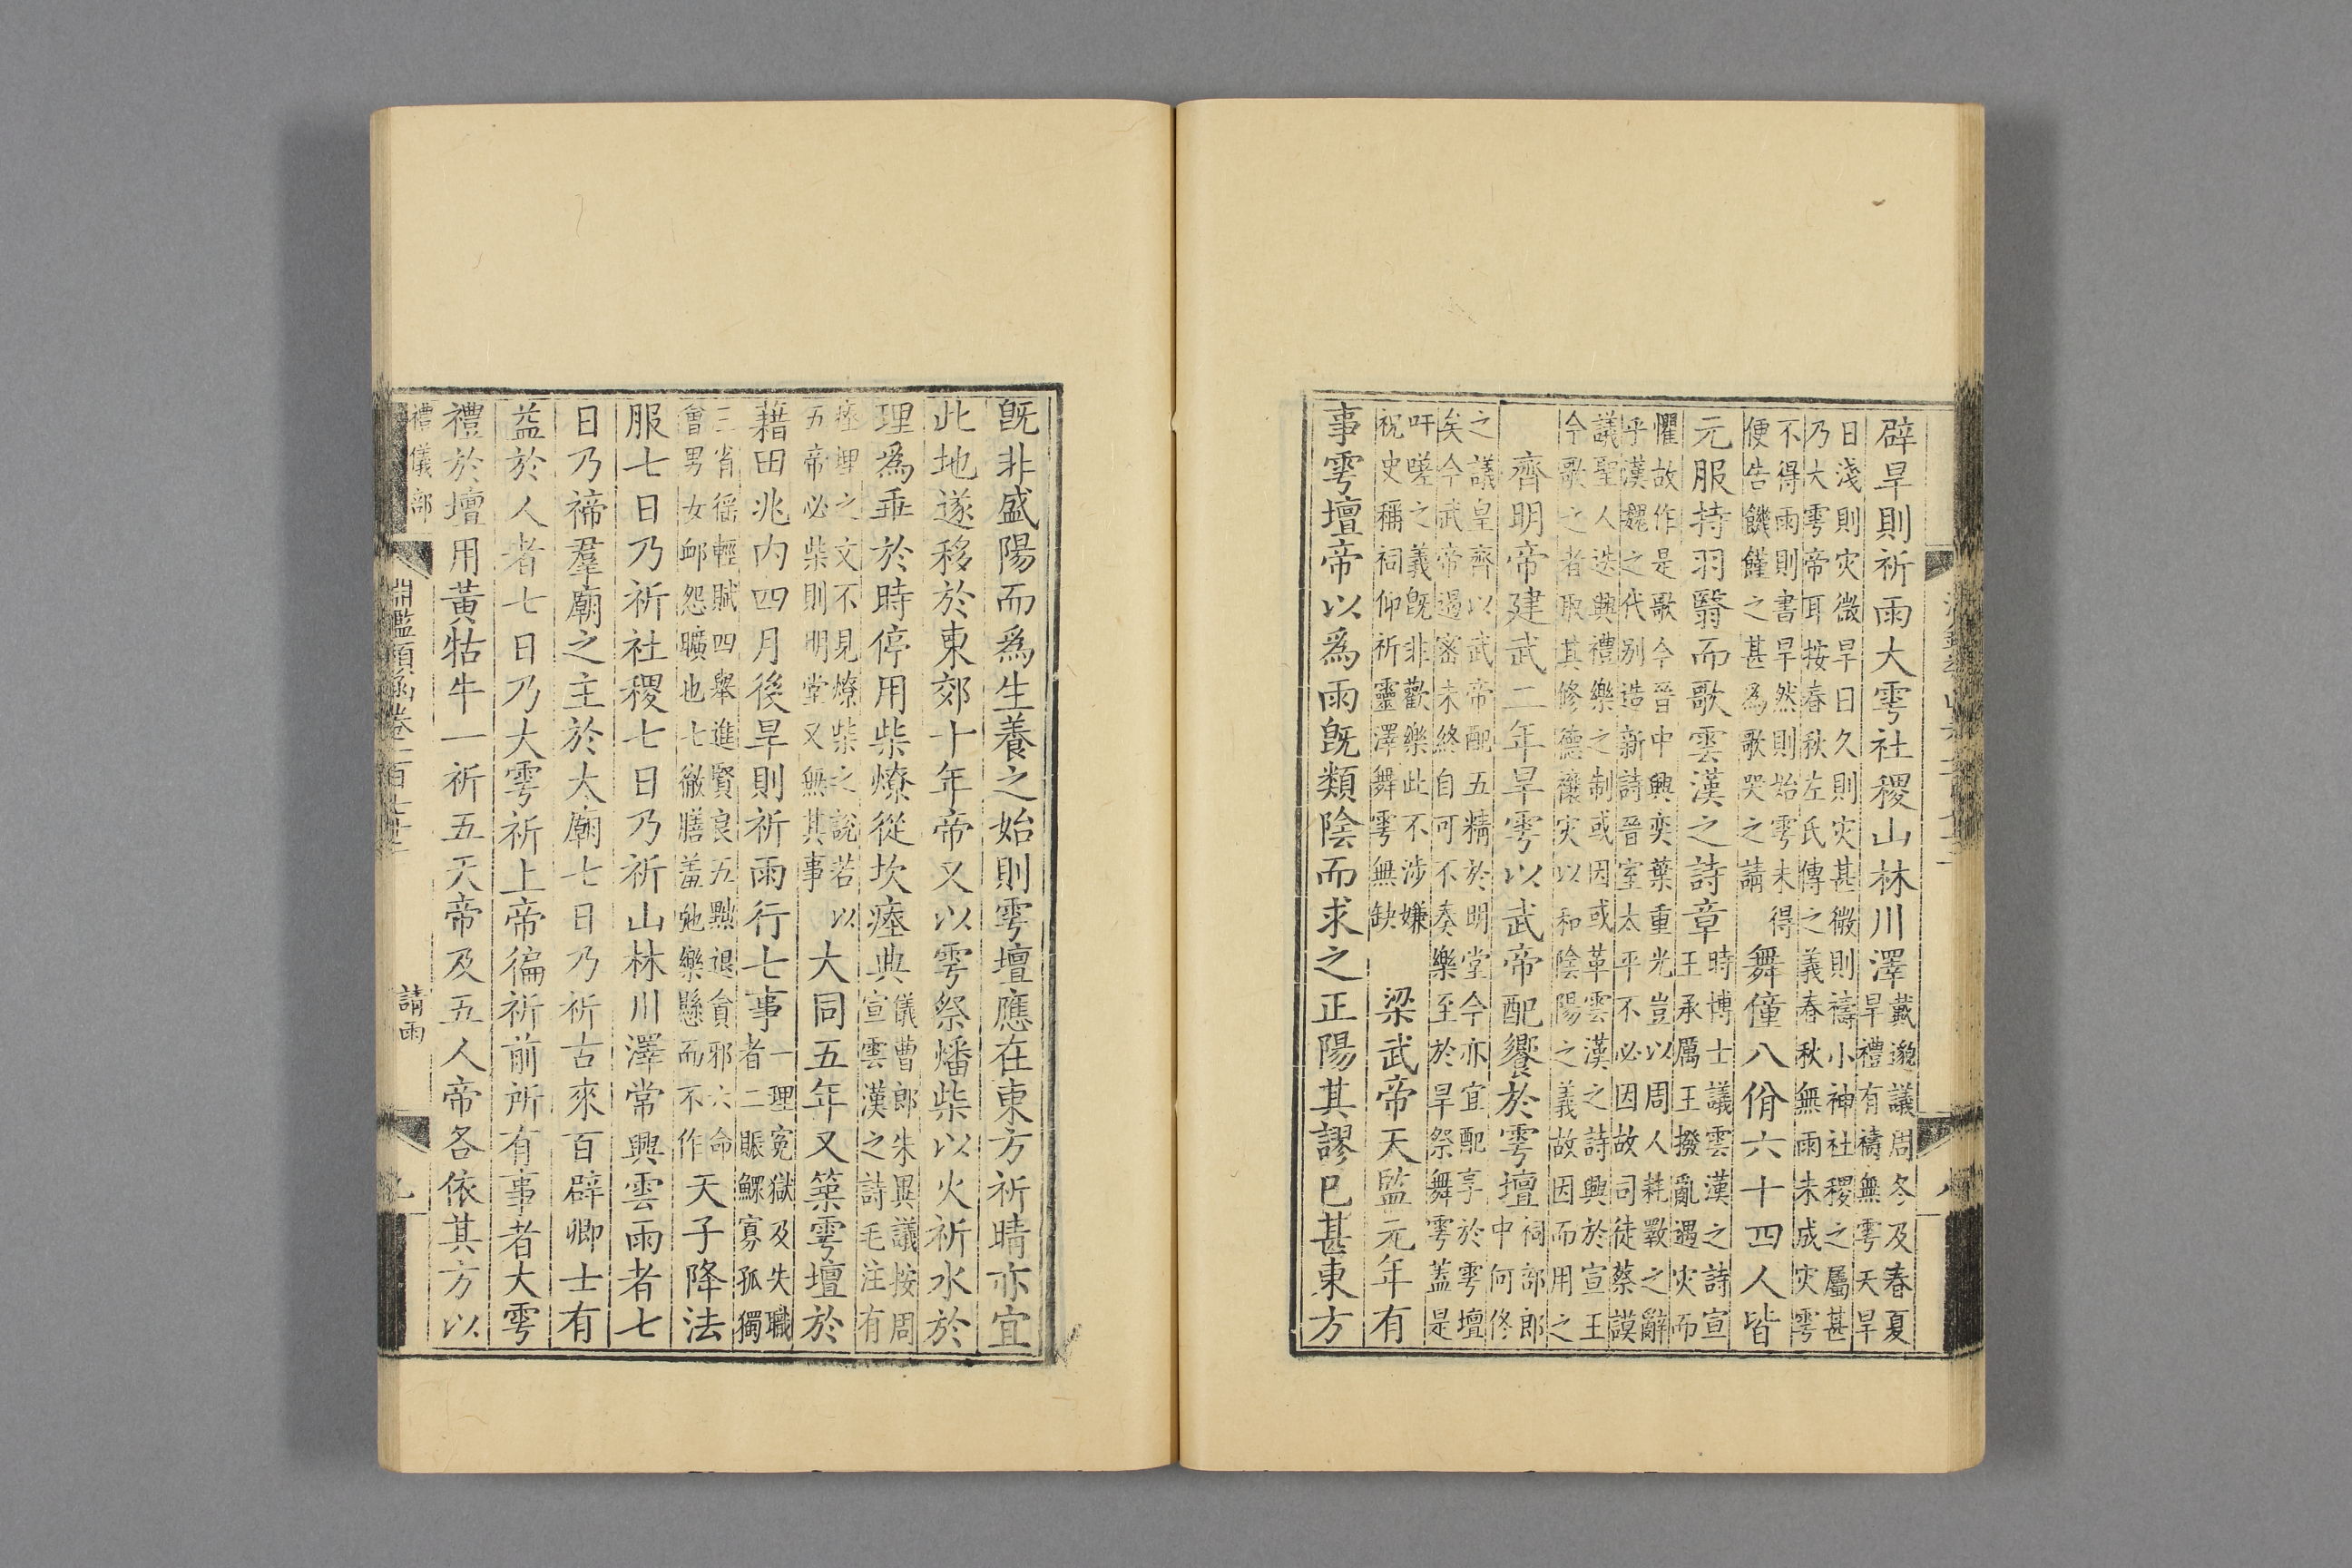 辟旱則祈雨大雩社稷山林川澤戴邈議周冬及春夏旱禮有禱無雩天旱
日淺則灾微旱日久則灾甚微則禱小神社稷之屬甚
乃大雩帝耳按春秋左氏傳之義春秋無雨未成灾雩
不得雨則書旱然則始雩未得便告饑饉之甚為歌哭之請舞僮八佾六十四人皆
元服持羽翳而歌雲漢之詩章時博士議雲漢之詩宣王承厲王撥亂遇灾而
懼故作是歌今晉中興奕葉重光豈以周人耗斁之辭
乎漢魏之代别造新詩晉室太平不必因故司徒蔡謨
議聖人迭興禮樂之制或因或革雲漢之詩興於宣王
今歌之者取其修德禳灾以和陰陽之義故因而用之
齊明帝建武二年旱雩以武帝配饗於雩壇祠部郎中何佟
之議皇齊以武帝配五精於明堂今亦宜配享於雩壇
矣今武帝遏密未終自可不奏樂至於旱祭舞雩蓋是
吁嗟之義旣非歡樂此不涉嫌祝史稱祠仰祈靈澤舞雩無缺梁武帝天監元年有
事雩壇帝以爲雨旣類陰而求之正陽其謬已甚東方
旣非盛陽而爲生養之始則雩壇應在東方祈晴亦宜
此地遂移於東郊十年帝又以雩祭燔柴以火祈水於
理爲乖於時停用柴燎從坎瘞典儀曹郎朱异議按周宣雲漢之詩毛注有
瘞埋之文不見燎柴之說若以五帝必柴則明堂又無其事大同五年又築雩壇於
藉田兆内四月後旱則祈雨行七事一理寃獄及失職者二賑鰥寡孤獨
三省徭輕賦四舉進賢良五黜退貪邪六命會男女䘏怨曠也七徹膳羞弛樂懸而不作天子降法
服七日乃祈社稷七日乃祈山林川澤常興雲雨者七
日乃禘羣廟之主於太廟七日乃祈古來百辟卿士有
益於人者七日乃大雩祈上帝徧祈前所有事者大雩
禮於壇用黃牯牛一祈五天帝及五人帝各依其方以
禮儀部
淵鑑類函卷一百七十二
請雨
九